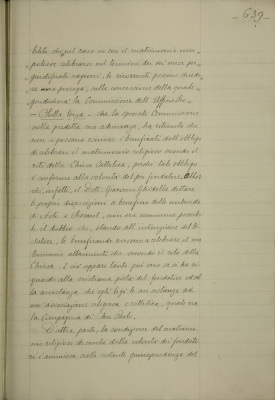 - 639 -
bilito che, nel caso in cui il matrimonio non
potesse celebrarsi nel termine dei sei mesi per
giustificati ragioni, le ricorrenti possano chiede
re una proroga, sulla concessione della quale
giudicherà la Commissione dell' Ufficio Pio
- Sulla terza - che la speciale Commissione
nella predetta sua adunanza, ha ritenuto che
non si possano esimere i beneficati dall'obbligo
di celebrare il matrimonio religioso secondo il
rito della Chiesa Cattolica, perchè tale obbligo
è conforme alla volontà del pio fondatore. Allor
chè, infatti, il Dott. Giacomo Ghidella dettava
le proprie disposizioni a benefizio delle
di Asti e non era nemmeno possibi
le il dubbio che, stando all'intenzione del te
statore, le beneficande avessero a celebrare il ma
trimonio altrimenti che secondo il rito della
Chiesa. E ciò appare tanto più vero se si ha ri
guardo alla cristiana pietà del fondatore ed al
la circostanza che egli legò le sue sostanze ad
un' associazione religiosa e cattolica, quale era
la Compagnia di San Paolo.
D'altra parte, la condizione del matrimo
nio religioso di cautela della volontà dei fondato
ri s'annunzia nella costante giurisprudenza del